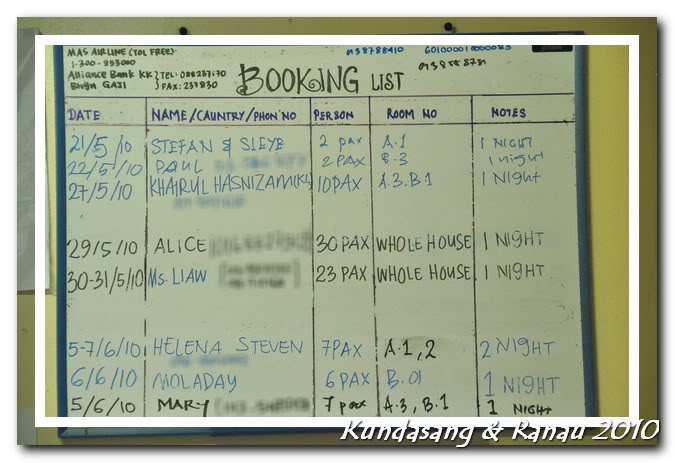 MAS AIRLINE (TOL FREE).
1-300-883000
Alliance Bank KK } TEL: 088237170
Bhgn GAJI } FAX: 237830
BOOKING LIST
DATE NAME/CAUNTRY/PHON NO PERSON ROOM NO NOTES
21/5/10 STEFAN & SLEYE 2 pax A.1 1 NIGHT
22/5/10 PAUL 2 PAX B-3 1 night
27/5/10 KHAIRUL HASNIZAM(KL) 10PAX A.3.B.1 1 NIGHT
29/5/10 ALICE 30 PAX WHOLE HOUSE 1 NIGHT
30-31/5/10 Ms. LIAW 23 PAX WHOLE HOUSE 1 NIGHT
5-7/6/10 HELENA STEVEN 7PAX A.1,2 2 NIGHT
6/6/10 MOLADAY 6 PAX B.01 1 NIGHT
5/6/10 MARY 7 pax A.3, B.1 1 NIGHT
Kundasang & Ranau 2010